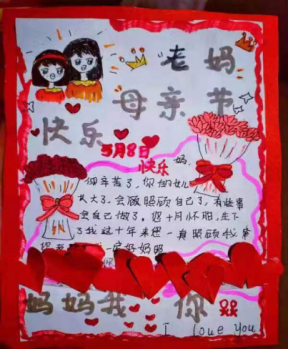 老妈
母亲节
快乐
5月8日
快乐
妈,
你辛苦了,你的女儿
长大了,会照顾自己了,有些事
会自己做了,您十月怀胎,生下
了我这十年来您一直照顾我
妈妈我 你
I love you